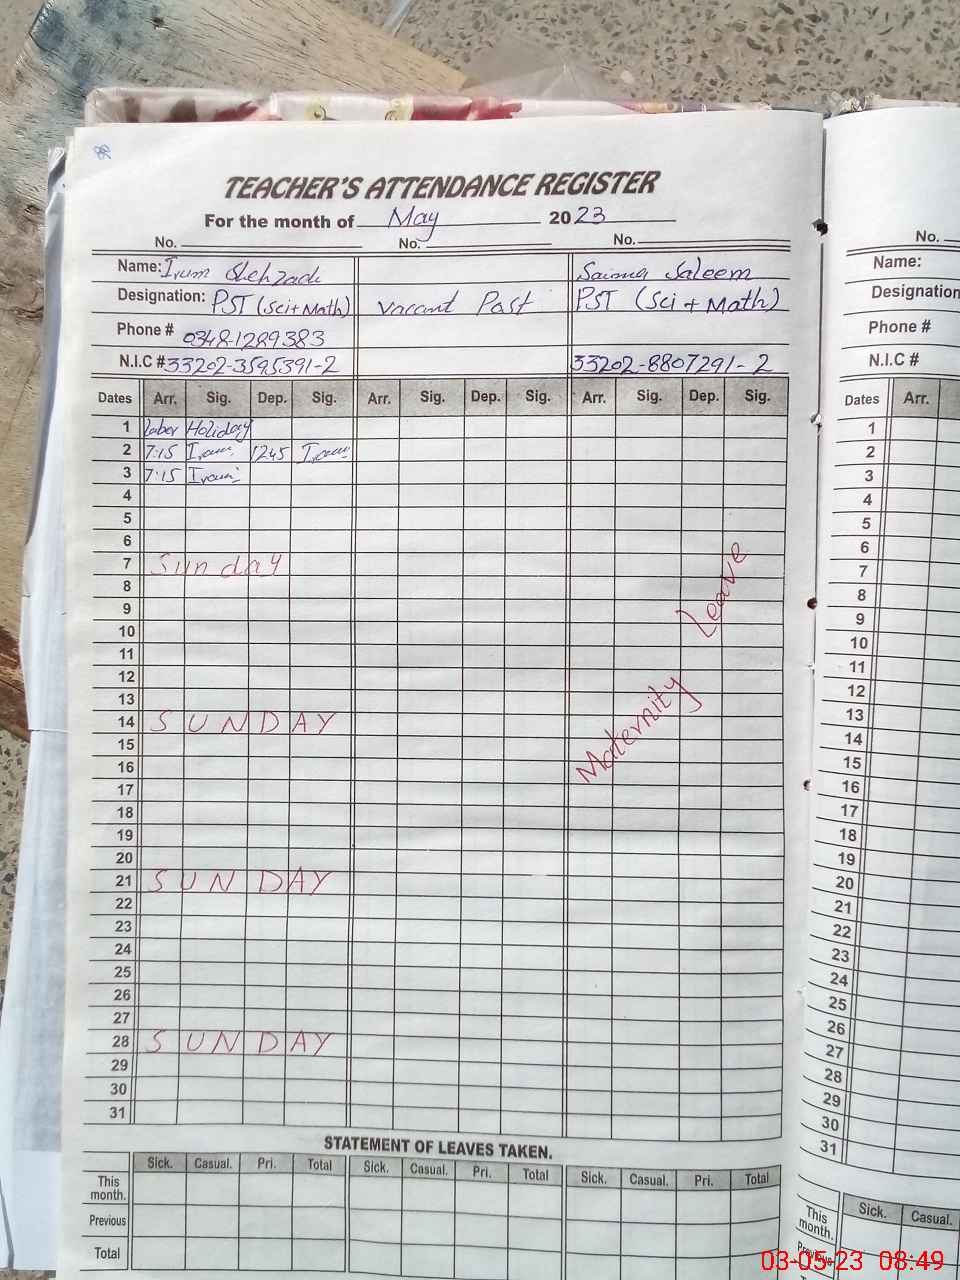 TEACHER'S ATTENDANCE REGISTER
For the month of May 2023
No. No. No.
Name: Irum Shehzadi Saima Saleem
Designation: PST (Sci+Math) Vacant Post PST (Sci + Math)
Phone # 0348-1289383
N.I.C # 33202-3595391-2 33202-8807291-2
Dates Arr. Sig. Dep. Sig. Arr. Sig. Dep. Sig. Arr. Sig. Dep. Sig.
1 Laber Holiday
2 7:15 Irum 1245 Irum
3 7:15 Irum
4
5
6
7 Sunday
8
9
10
11
12
13
14 SUNDAY
15
16
17
18
19
20
21 SUNDAY
22
23
24
25
26
27
28 SUNDAY
29
30
31
Maternity Leave
STATEMENT OF LEAVES TAKEN.
Sick. Casual. Pri. Total Sick. Casual. Pri. Total Sick. Casual. Pri. Total
This month.
Previous
Total
No.
Name:
Designation
Phone #
N.I.C #
Dates Arr.
1
2
3
4
5
6
7
8
9
10
11
12
13
14
15
16
17
18
19
20
21
22
23
24
25
26
27
28
29
30
31
Sick. Casual.
This month.
Previous
03-05-23 08:49